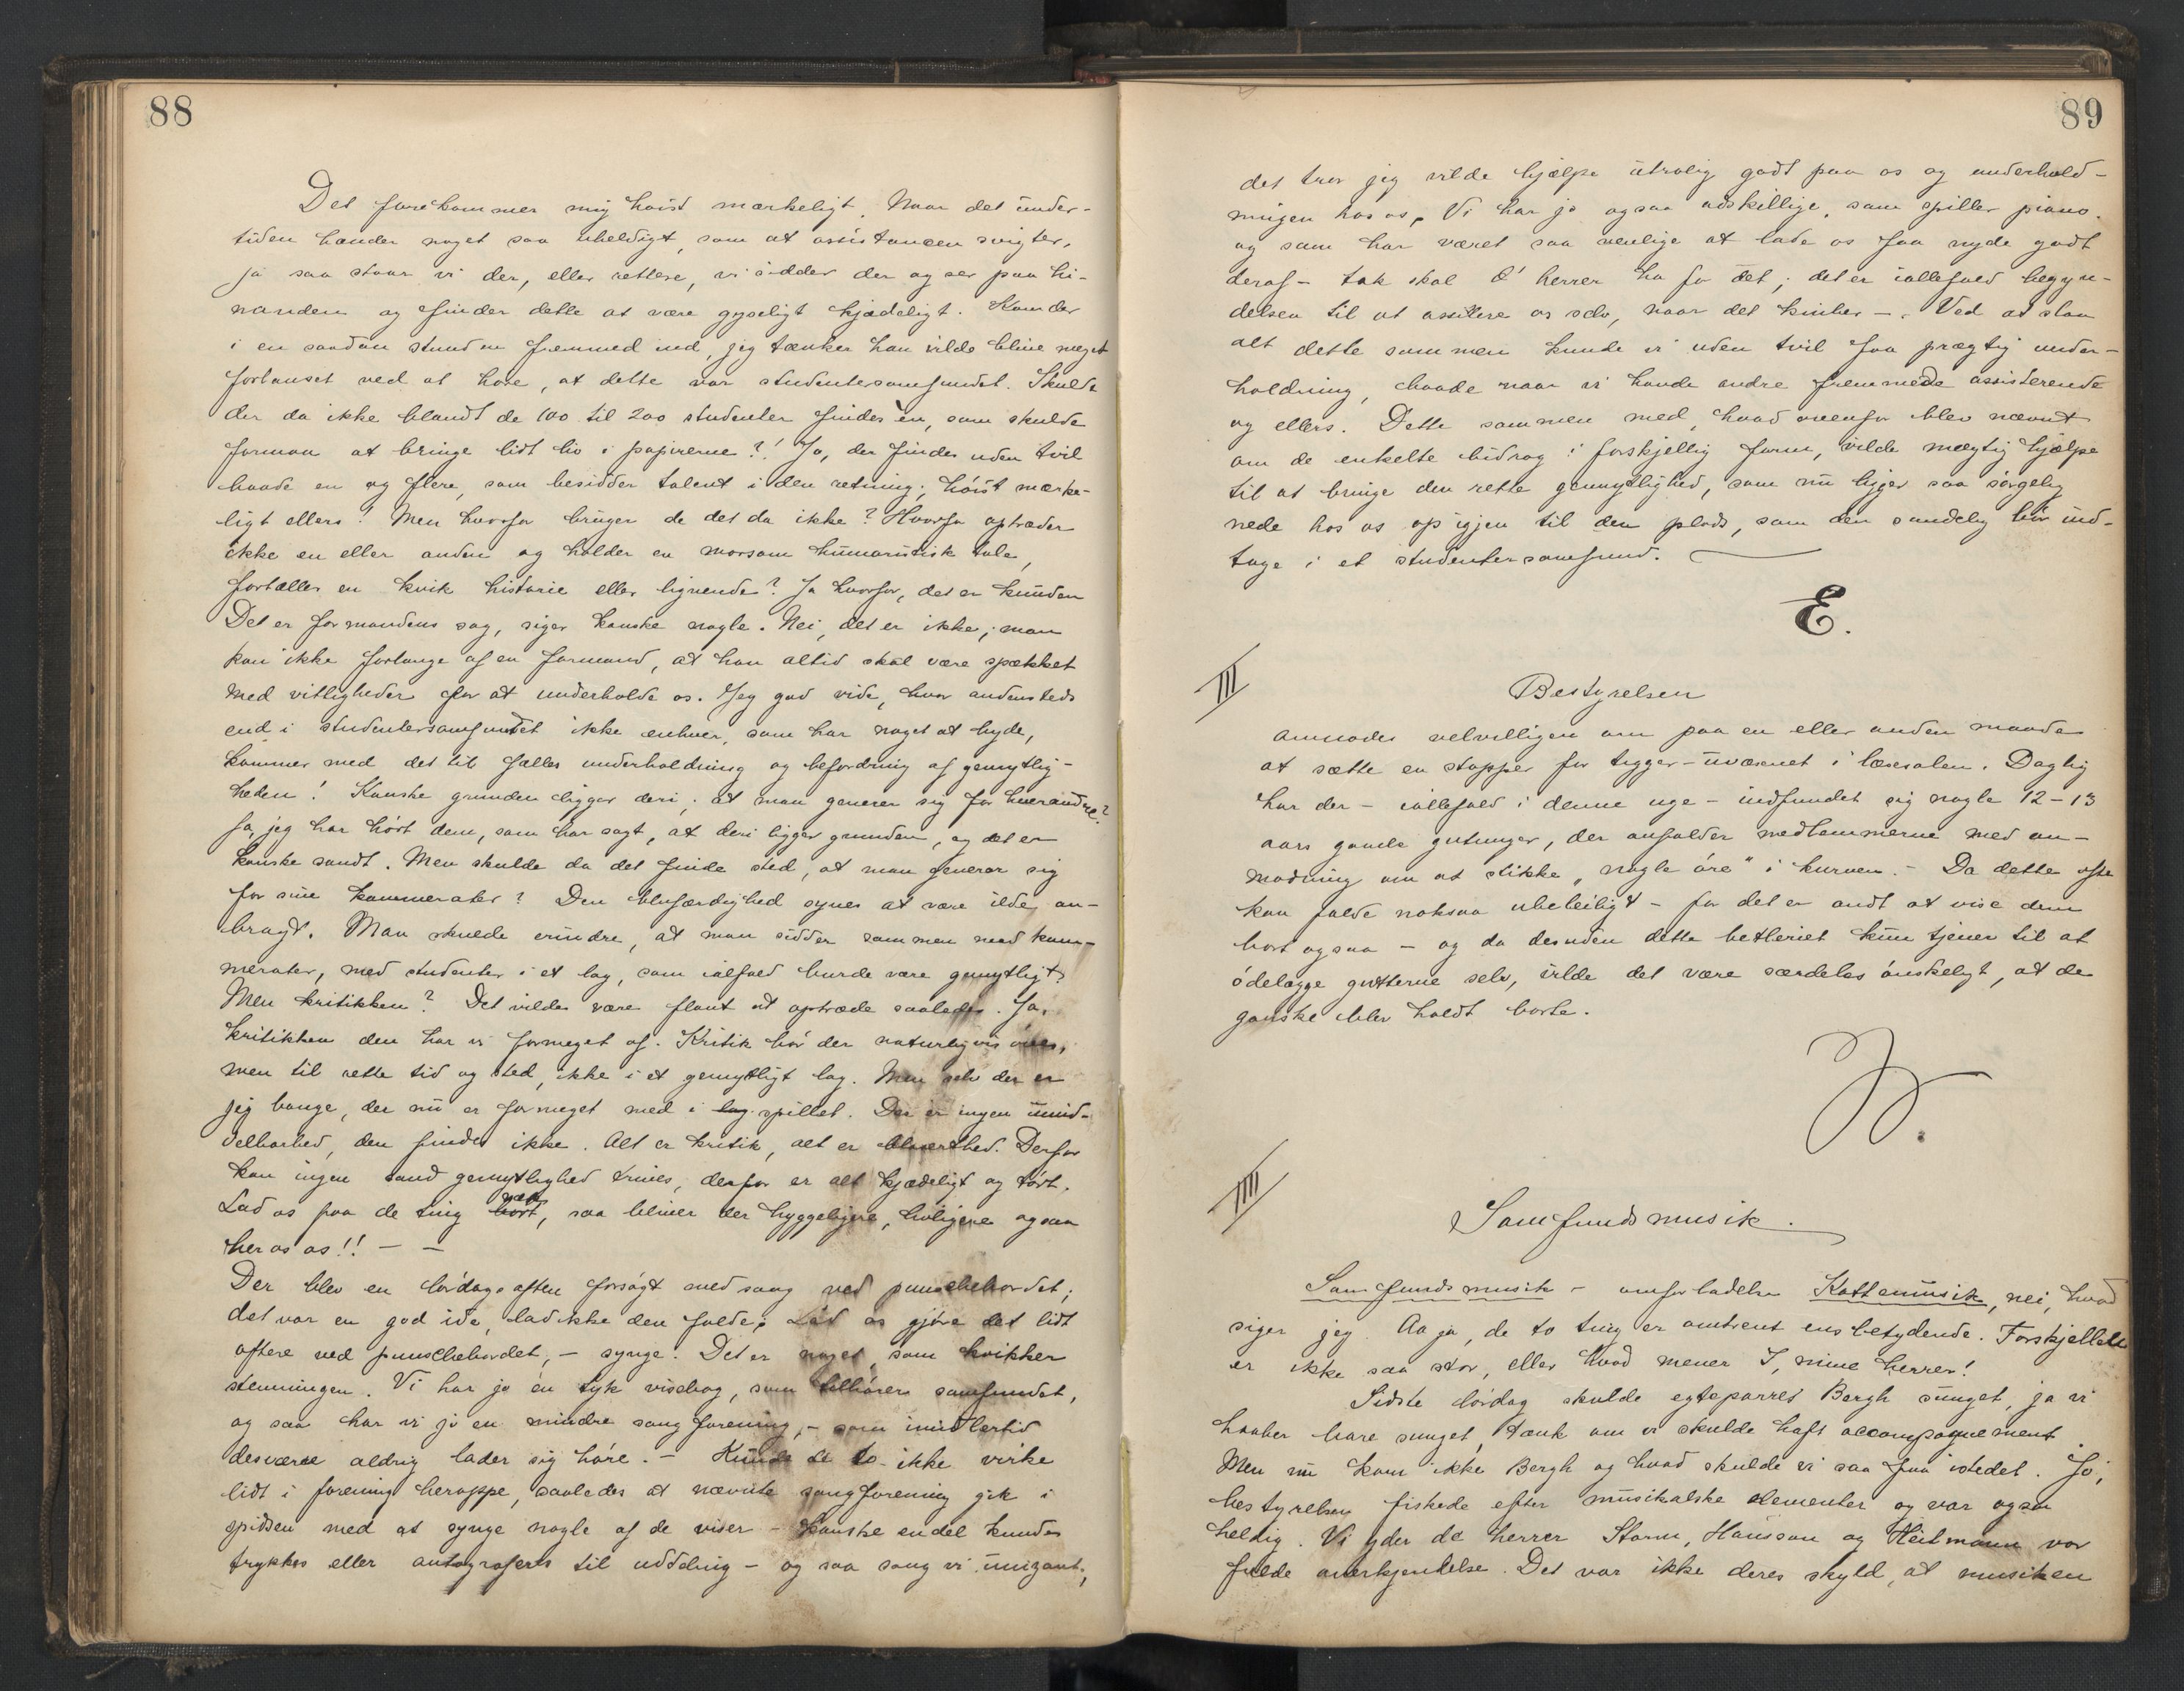 88
Det forekommer mig høist mærkeligt. Naar det under-
tiden hænder noget saa uheldigt, som at assistancen svigter,
ja saa staar vi der, eller rettere, vi sidder der og ser paa hi-
nanden og finder dette at være gyseligt kjædeligt. Kom der
i en saadan stund en fremmed ind, jeg tænker han vilde blive meget
forbauset ved at høre, at dette var studentersamfundet. Skulde
der da ikke blandt de 100 til 200 studenter findes en, som skulde
formaa at bringe lidt liv i papirerne?! Jo, der findes uden tvil
baade en og flere, som besidder talent i den retning; høist mærke-
ligt ellers! Men hvorfor bruger de det da ikke? Hvorfor optræder
ikke en eller anden og holder en morsom humoristisk tale,
fortæller en kvik historie eller lignende? Ja hvorfor, det er kunden
Det er formandens sag, siger kanske nogle. Nei, det er ikke; man
kan ikke forlange af en formand, at han altid skal være spækket
med vittigheder for at underholde os. Jeg gad vide, hvor andensteds
end i studentersamfundet ikke enhver, som har noget at byde,
kommer med det til fælles underholdning og befordring af gemytlig-
heden! Kanske grunden ligger deri, at man generer sig for hverandre?
Ja, jeg har hørt dem, som har sagt, at deri ligger grunden, og det er
kanske sandt. Men skulde da det finde sted, at man generer sig
for sine kammerater? Den blufærdighed synes at være ilde an-
bragt. Man skulde erindre, at man sidder sammen med kam-
merater, med studenter i et lag, som ialfald burde være gemytligt?
Men kritikken? Det vilde være flaut at optræde saaledes. Ja,
kritikken den har vi formeget af. Kritik bør der naturligvis øves,
men til rette tid og sted, ikke i et gemytligt lag. Men selv der er
jeg bange, der nu er formeget med i lag spillet. Der er ingen umid-
delbarhed, den findes ikke. Alt er kritik, alt er blaserthed. Derfor
kan ingen sand gemytlighed trives, derfor er alt kjædeligt og tørt.
Lad os faa de ting bort væk, saa bliver der hyggeligere, livligere ogsaa
her os os!! — —
Der blev en lørdagsaften forsøgt med sang ved punschebordet;
det var en god ide, lad ikke den falde; Lad os gjøre det lidt
oftere ved punschebordet, – synge. Det er noget, som kvikker
stemningen. Vi har jo en tyk visebog, som tilhører samfundet,
og saa har vi jo en mindre sangforening, – som imidlertid
desværre aldrig lader sig høre. – Kunde de to ikke virke
lidt i forening heroppe, saaledes at nævnte sangforening gik i
spidsen med at synge nogle af de viser – kanske endel kunde
trykkes eller autograferes til uddeling – og saa sang vi unisont,
89
det tror jeg vilde hjælpe utrolig godt paa os og underhold-
ningen hos os. Vi har jo ogsaa adskillige, som spiller piano.
og som har været saa venlige at lade os faa nyde godt
deraf – tak skal d' herrer ha for det; det er iallefald begyn-
delsen til at assistere os selv, naar det kniber –. Ved at slaa
alt dette sammen kunde vi uden tvil faa prægtig under-
holdning, baade naar vi havde andre fremmede assisterende
og ellers. Dette sammen med, hvad ovenfor blev nævnt
om de enkelte bidrag i forskjellig form, vilde mægtig hjælpe
til at bringe den rette gemytlighed, som nu ligger saa sørgelig
nede hos os op igjen til den plads, som den sandelig bør ind-
tage i et studentersamfund.
E.
III
Bestyrelsen
anmodes velvilligen om paa en eller anden maade
at sætte en stopper for tigger-uvæsnet i læsesalen. Daglig
har der – iallefald i denne uge – indfundet sig nogle 12–13
aars gamle gutunger, der anfalder medlemmerne med an-
modning om at stikke „nogle øre" i kurven. – Da dette ofte
kan falde noksaa ubeleiligt – for det er ondt at vise dem
bort ogsaa – og da desuden dette betleriet kun tjener til at
ødelægge gutterne selv, vilde det være særdeles ønskeligt, at de
ganske blev holdt borte.
IIII
Samfundsmusik.
Samfundsmusik – omforladelse Kattemusik, nei, hvad
siger jeg. Aa ja, de to ting er omtrent ensbetydende. Forskjellen
er ikke saa stor, eller hvad mener I, mine herrer!
Sidste lørdag skulde egteparret Bergh sunget, ja vi
haaber bare sunget, tænk om vi skulde haft accompagnement
Men nu kom ikke Bergh og hvad skulde vi saa faa istedet. Jo,
bestyrelsen fiskede efter musikalske elementer og var ogsaa
heldig. Vi yder de herrer Storm, Hansson og Heitmann vor
fulde anerkjendelse. Det var ikke deres skyld, at musiken